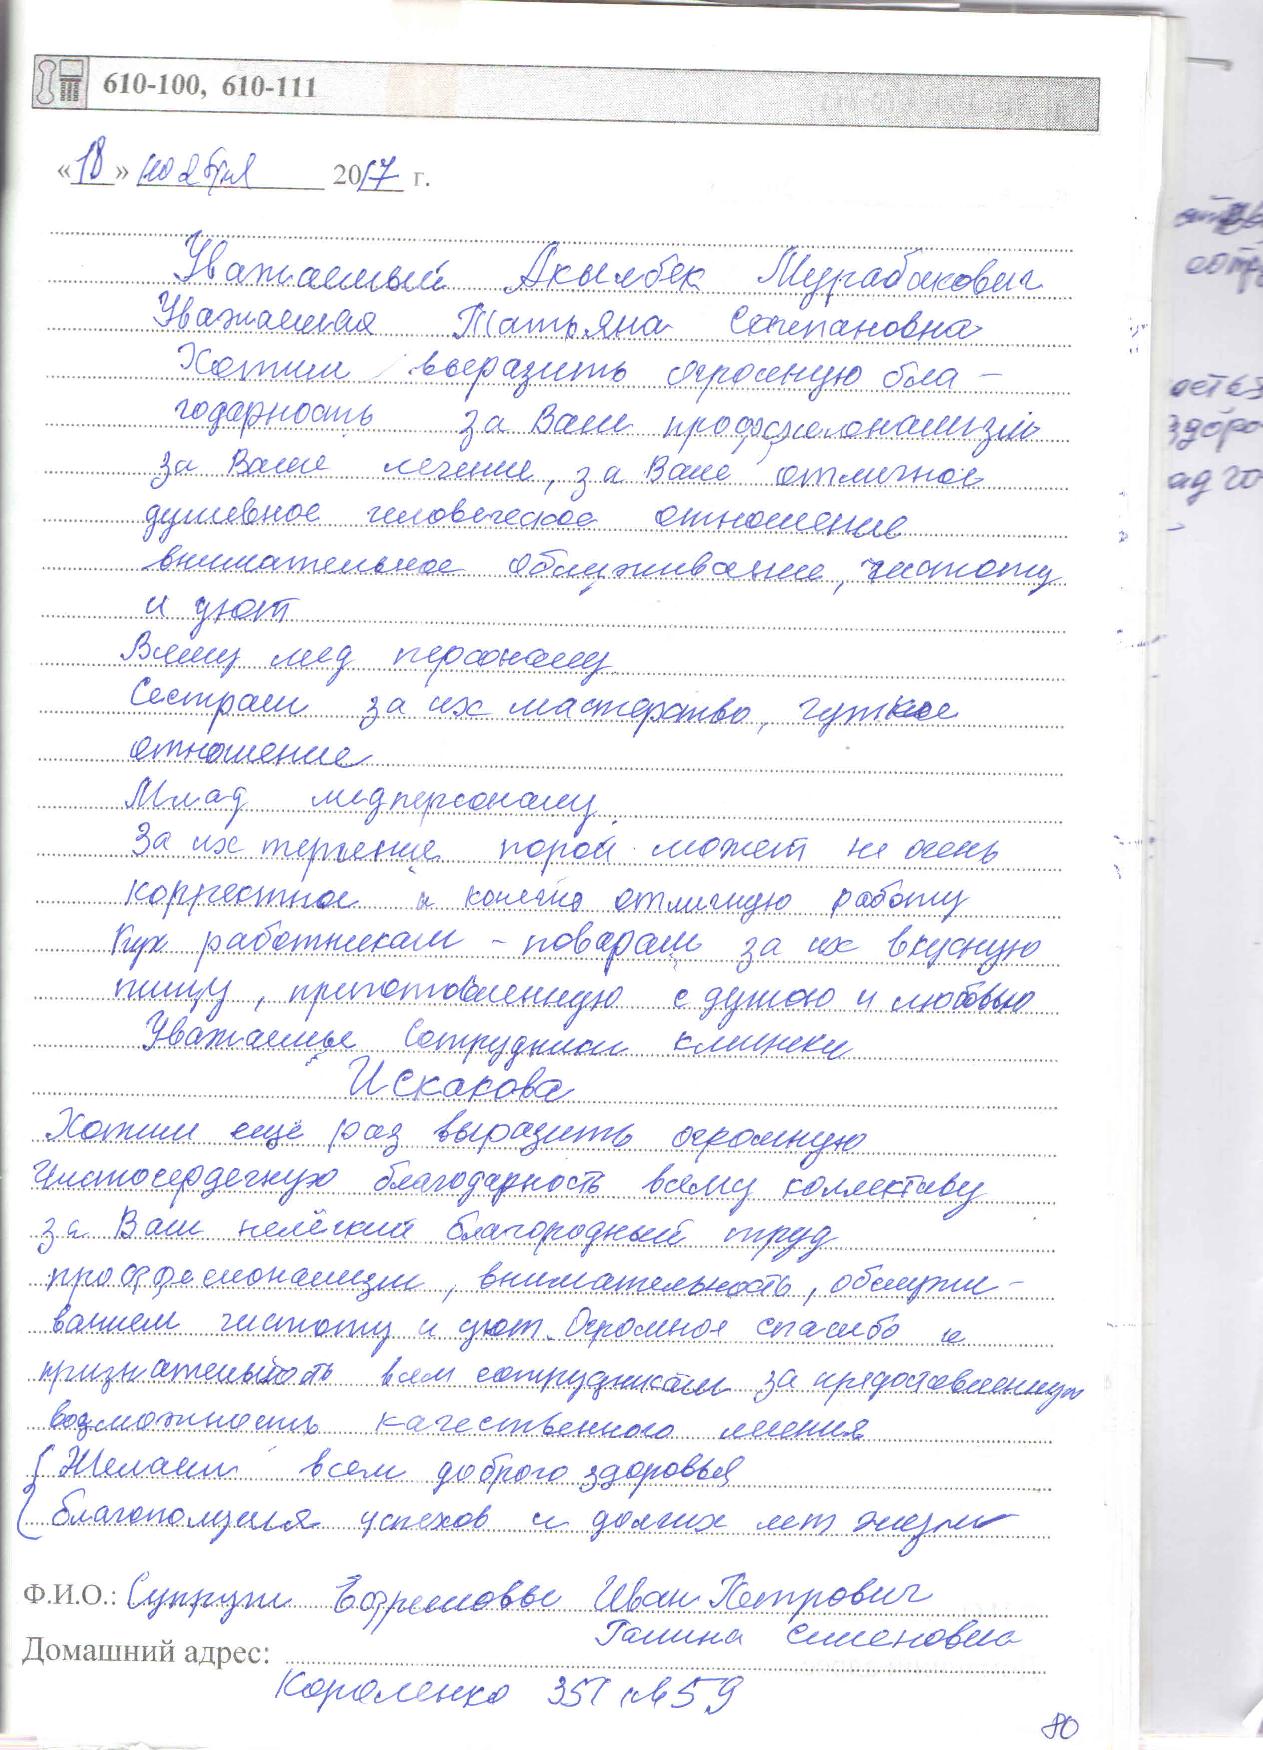 610-100, 610-111
«18» ноября 2017 г.
Уважаемый Акылбек Мурабекович
Уважаемая Татьяна Степановна
Хотим выразить огромную бла-
годарность за Ваш професионализм
за Ваше лечение, за Ваше отличное
душевное человеческое отношение
внимательное обслуживание, чистоту
и уют
Всему мед персоналу
Сестрам за их мастерство, чуткое
отношение
Млад медперсоналу
За их терпение порой может не очень
корректное и конечно отличную работу
Кух работникам - поварам за их вкусную
пищу, приготовленную с душою и любовью
Уважаемые сотрудники клиники
Искакова
Хотим ещё раз выразить огромную
чистосердечную благодарность всему коллективу
за Ваш нелёгкий благородный труд
профессионализм, внимательность, обслужи-
ванием чистоту и уют. Огромное спасибо и
признательность всем сотрудникам за предоставленную
возможность качественного лечения
Желаем всем доброго здоровья
благополучия успехов и долгих лет жизни
Ф.И.О.: Супруги Ефремовы Иван Петрович
Галина Семеновна
Домашний адрес:
Короленко 357 кв 59
80